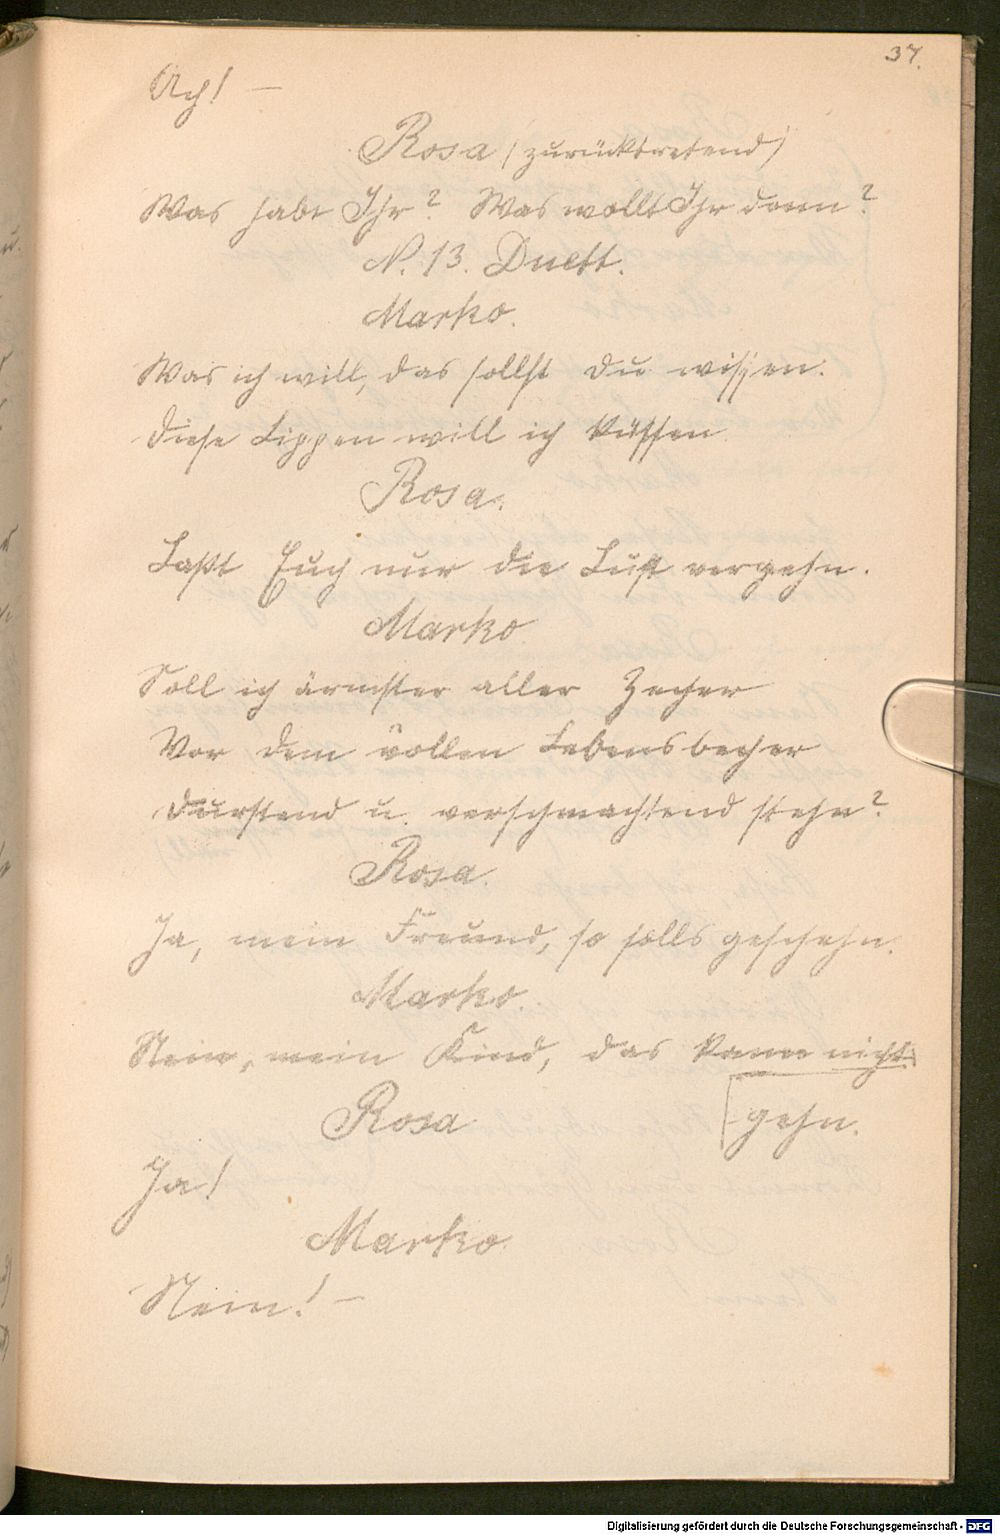 37.
Ach! —
Rosa (zurücktretend)
Was habt Ihr? Was wollt Ihr denn?
N. 13. Duett.
Marko.
Was ich will, das sollst du wissen.
Diese Lippen will ich küssen
Rosa.
Laßt Euch nur die Lust vergehn.
Marko
Soll ich ärmster aller Zecher
Vor dem vollen Lebensbecher
Durstend u. verschmachtend stehn?
Rosa.
Ja, mein Freund, so solls geschehn.
Marko.
Nein, mein Kind, das kann nicht
gehn.
Rosa
Ja!
Marko
Nein! —
Digitalisierung gefördert durch die Deutsche Forschungsgemeinschaft - DFG